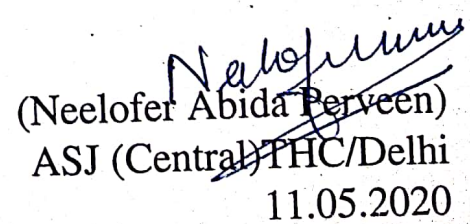 (Neelofer Abida Perveen)
ASJ (Central)THC/Delhi
11.05.2020